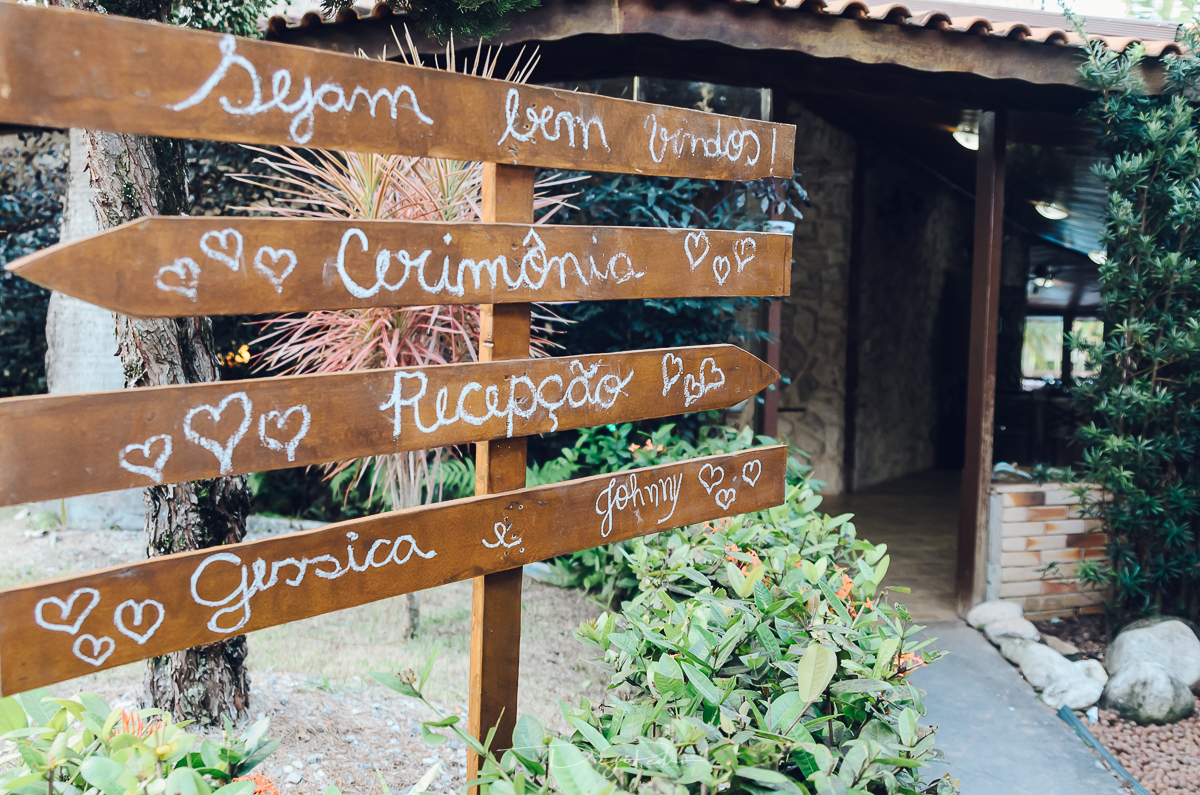 Sejam bem vindos!
Cerimônia
Recepção
Gessica e Johnny